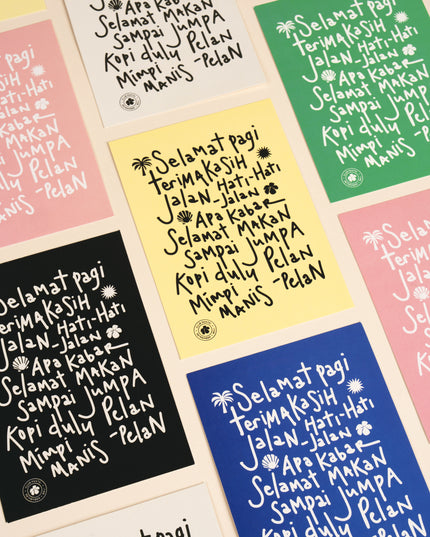 Apa Kabar
Selamat MAKAN
Sampai JUMPA
Kopi dulu Pelan
Mimpi -PelaN
MANIS
Selamat pagi
terimaKasiH
Jalan- Hati-Hati
-Jalan
Apa Kabar
Selamat MAKAN
Sampai JUMPA
Kopi dulu Pelan
Mimpi -PelaN
MANIS
pagi
Hati-Hati
Jalan
Kabar
MAKAN
JUMPA
dulu Pelan
-PelaN
MANIS
Selamat pagi
terimaKasiH
Jalan- Hati-Hati
-Jalan
Apa Kabar
Selamat MAKAN
Sampai JUMPA
Kopi dulu Pelan
Mimpi -PelaN
MANIS
Selamat pagi
terimaKasiH
Jalan- Hati-Hati
-Jalan
Apa Kabar
Selamat MAKAN
Sampai JUMPA
Kopi dulu Pelan
Mimpi -PelaN
MANIS
Apa
Kopi
MANIS
Selamat pagi
terimaKasiH
Jalan- Hati-Hati
-Jalan
Apa Kabar
Selamat MAKAN
Sampai JUMPA
Kopi dulu Pelan
-PelaN
pagi